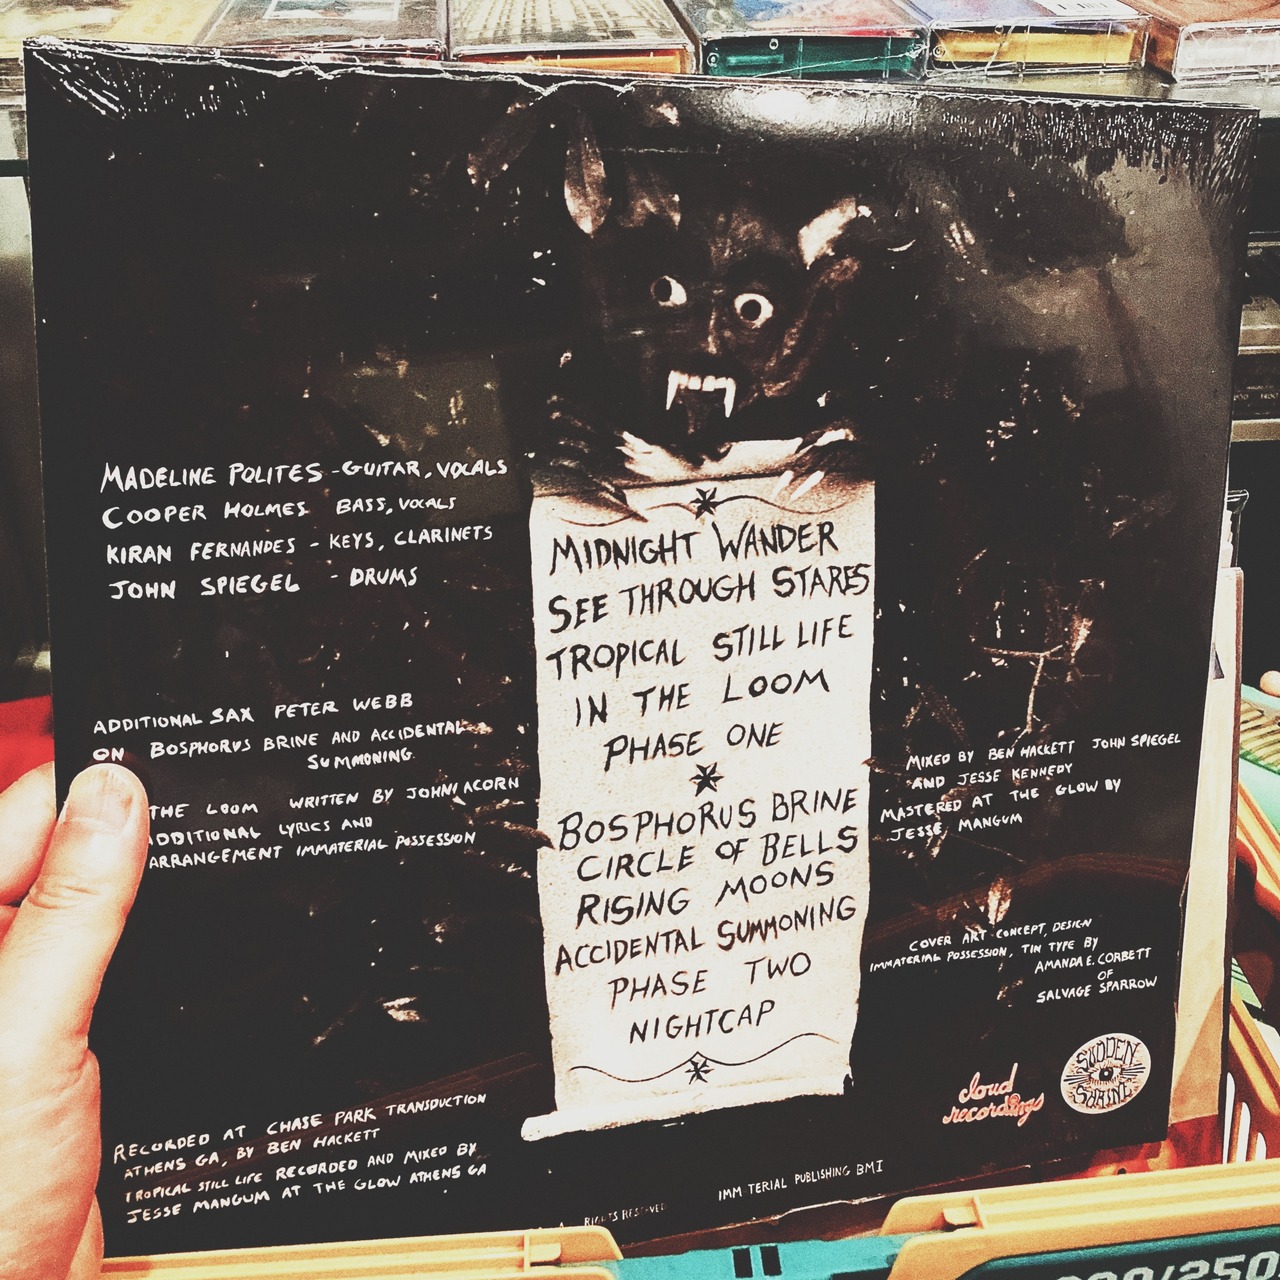 MADELINE POLITES - GUITAR, VOCALS
COOPER HOLMES BASS, VOCALS
KIRAN FERNANDES - KEYS, CLARINETS
JOHN SPIEGEL - DRUMS
ADDITIONAL SAX PETER WEBB
ON BOSPHORUS BRINE AND ACCIDENTAL
SUMMONING.
THE LOOM WRITTEN BY JOHNI ACORN
ADDITIONAL LYRICS AND
ARRANGEMENT IMMATERIAL POSSESSION
RECORDED AT CHASE PARK TRANSDUCTION
ATHENS GA, BY BEN HACKETT
TROPICAL STILL LIFE RECORDED AND MIXED BY
JESSE MANGUM AT THE GLOW ATHENS GA
MIDNIGHT WANDER
SEE THROUGH STARES
TROPICAL STILL LIFE
IN THE LOOM
PHASE ONE
BOSPHORUS BRINE
CIRCLE OF BELLS
RISING MOONS
ACCIDENTAL SUMMONING
PHASE TWO
NIGHTCAP
MIXED BY BEN HACKETT JOHN SPIEGEL
AND JESSE KENNEDY
MASTERED AT THE GLOW BY
JESSE MANGUM
COVER ART CONCEPT, DESIGN
IMMATERIAL POSSESSION, TIN TYPE BY
AMANDA E. CORBETT
OF
SALVAGE SPARROW
cloud
recordings
SUDDEN
SHRINE
RIGHTS RESERVED
IMM TERIAL PUBLISHING BMI